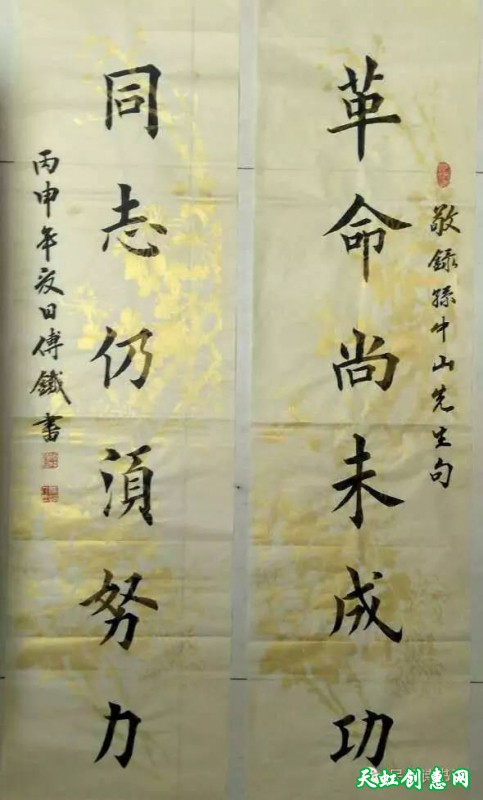 敬録孫中山先生句
革命尚未成功
同志仍湏努力
丙申年夏日傅鐵書
天虹创惠网